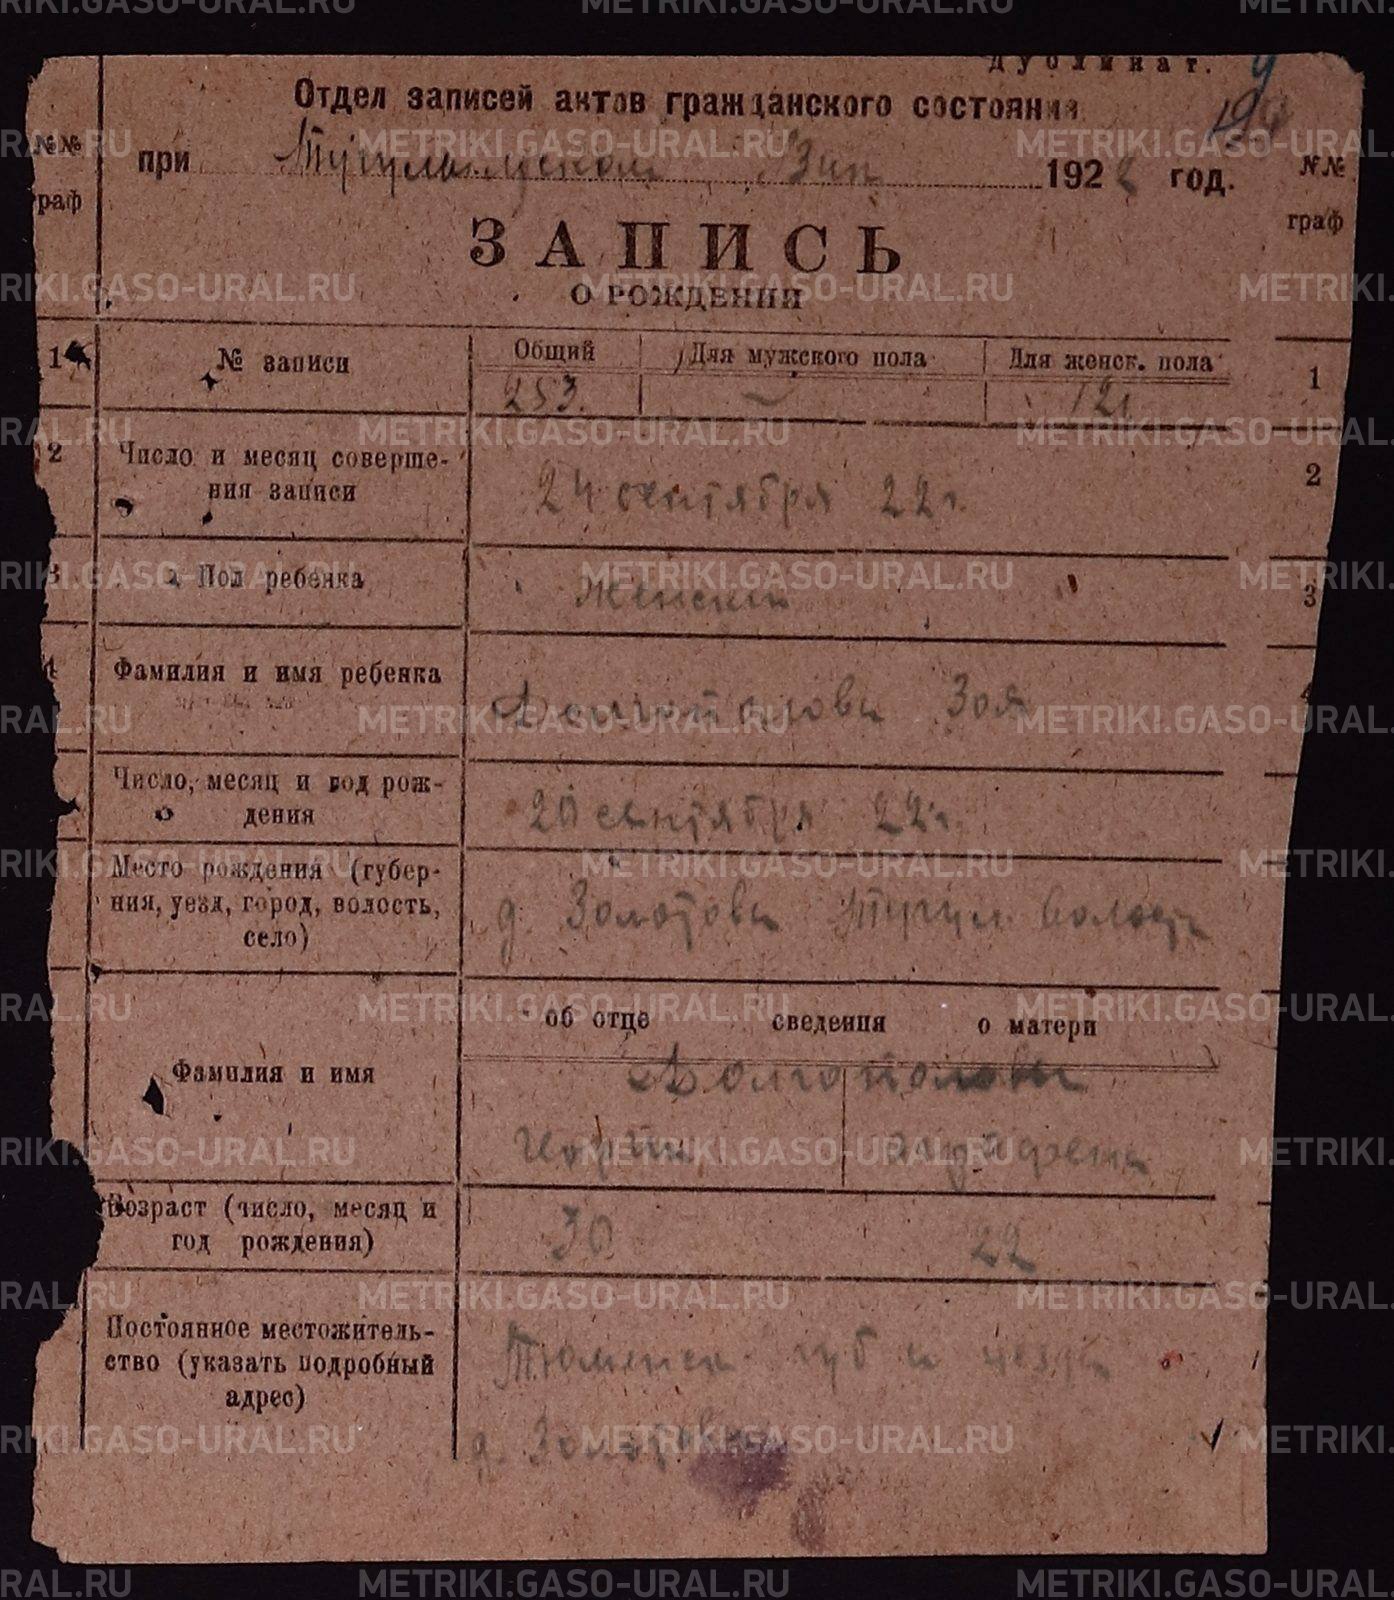 Дубликат.
Отдел записей актов гражданского состояния
при Тугулымском Вик 1922 год.
№№ граф
№№ граф
ЗАПИСЬ
О РОЖДЕНИИ
1 № записи Общий Для мужского пола Для женск. пола 1
253. — 121
2 Число и месяц соверше- 2
ния записи 24 сентября 22 г.
3 Пол ребенка Женский 3
4 Фамилия и имя ребенка Долгополова Зоя 4
Число, месяц и год рож-
дения 20 сентября 22 г.
Место рождения (губер-
ния, уезд, город, волость, д. Золотова Тугул. волость
село)
об отце сведения о матери
Фамилия и имя Долгополовы
Возраст (число, месяц и
год рождения) 30 22
Постоянное местожитель- Тюменск. губ и уезда
ство (указать подробный
адрес)
д. Золотова
METRIKI.GASO-URAL.RU